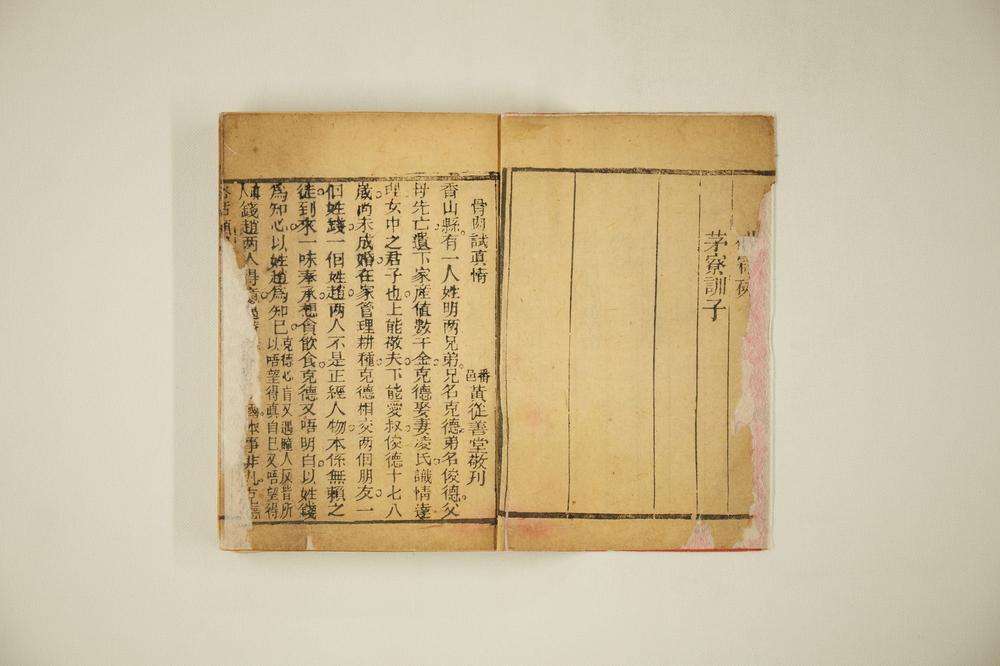 茅寮訓子
骨肉試真情
番邑黃從善堂敬刊
香山縣有一人姓明兩兄弟兄名克德弟名俊德父
母先亡遺下家產值數千金克德娶妻凌氏識情達
理女中之君子也上能敬夫下能愛叔俊德十七八
歲尚未成婚在家管理耕種克德相交兩個朋友一
個姓錢一個姓趙兩人不是正經人物本係無賴之
徒到來一味奉承想食飲食克德又唔明白以姓錢
為知心以姓趙為知己克德心盲又遇瞳人反皆所以唔望得真自己又唔望得
人錢趙兩人得
事非凡克德